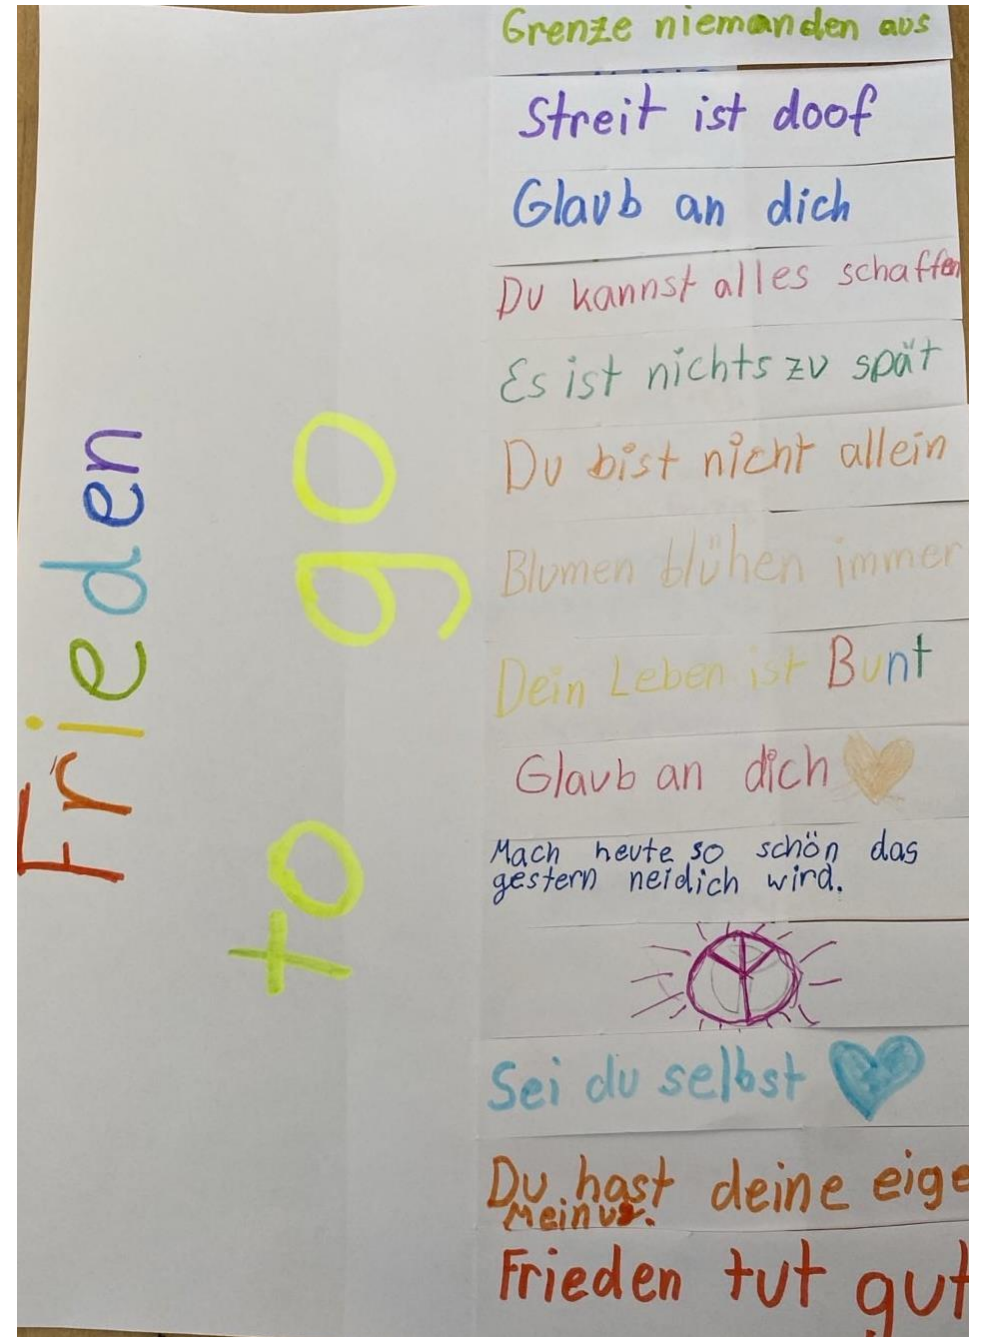 Frieden
to go
Grenze niemanden aus
Streit ist doof
Glaub an dich
Du kannst alles schaffen
Es ist nichts zu spät
Du bist nicht allein
Blumen blühen immer
Dein Leben ist Bunt
Glaub an dich
Mach heute so schön das
gestern neidich wird.
Sei du selbst
Du hast deine eige
Frieden tut gut